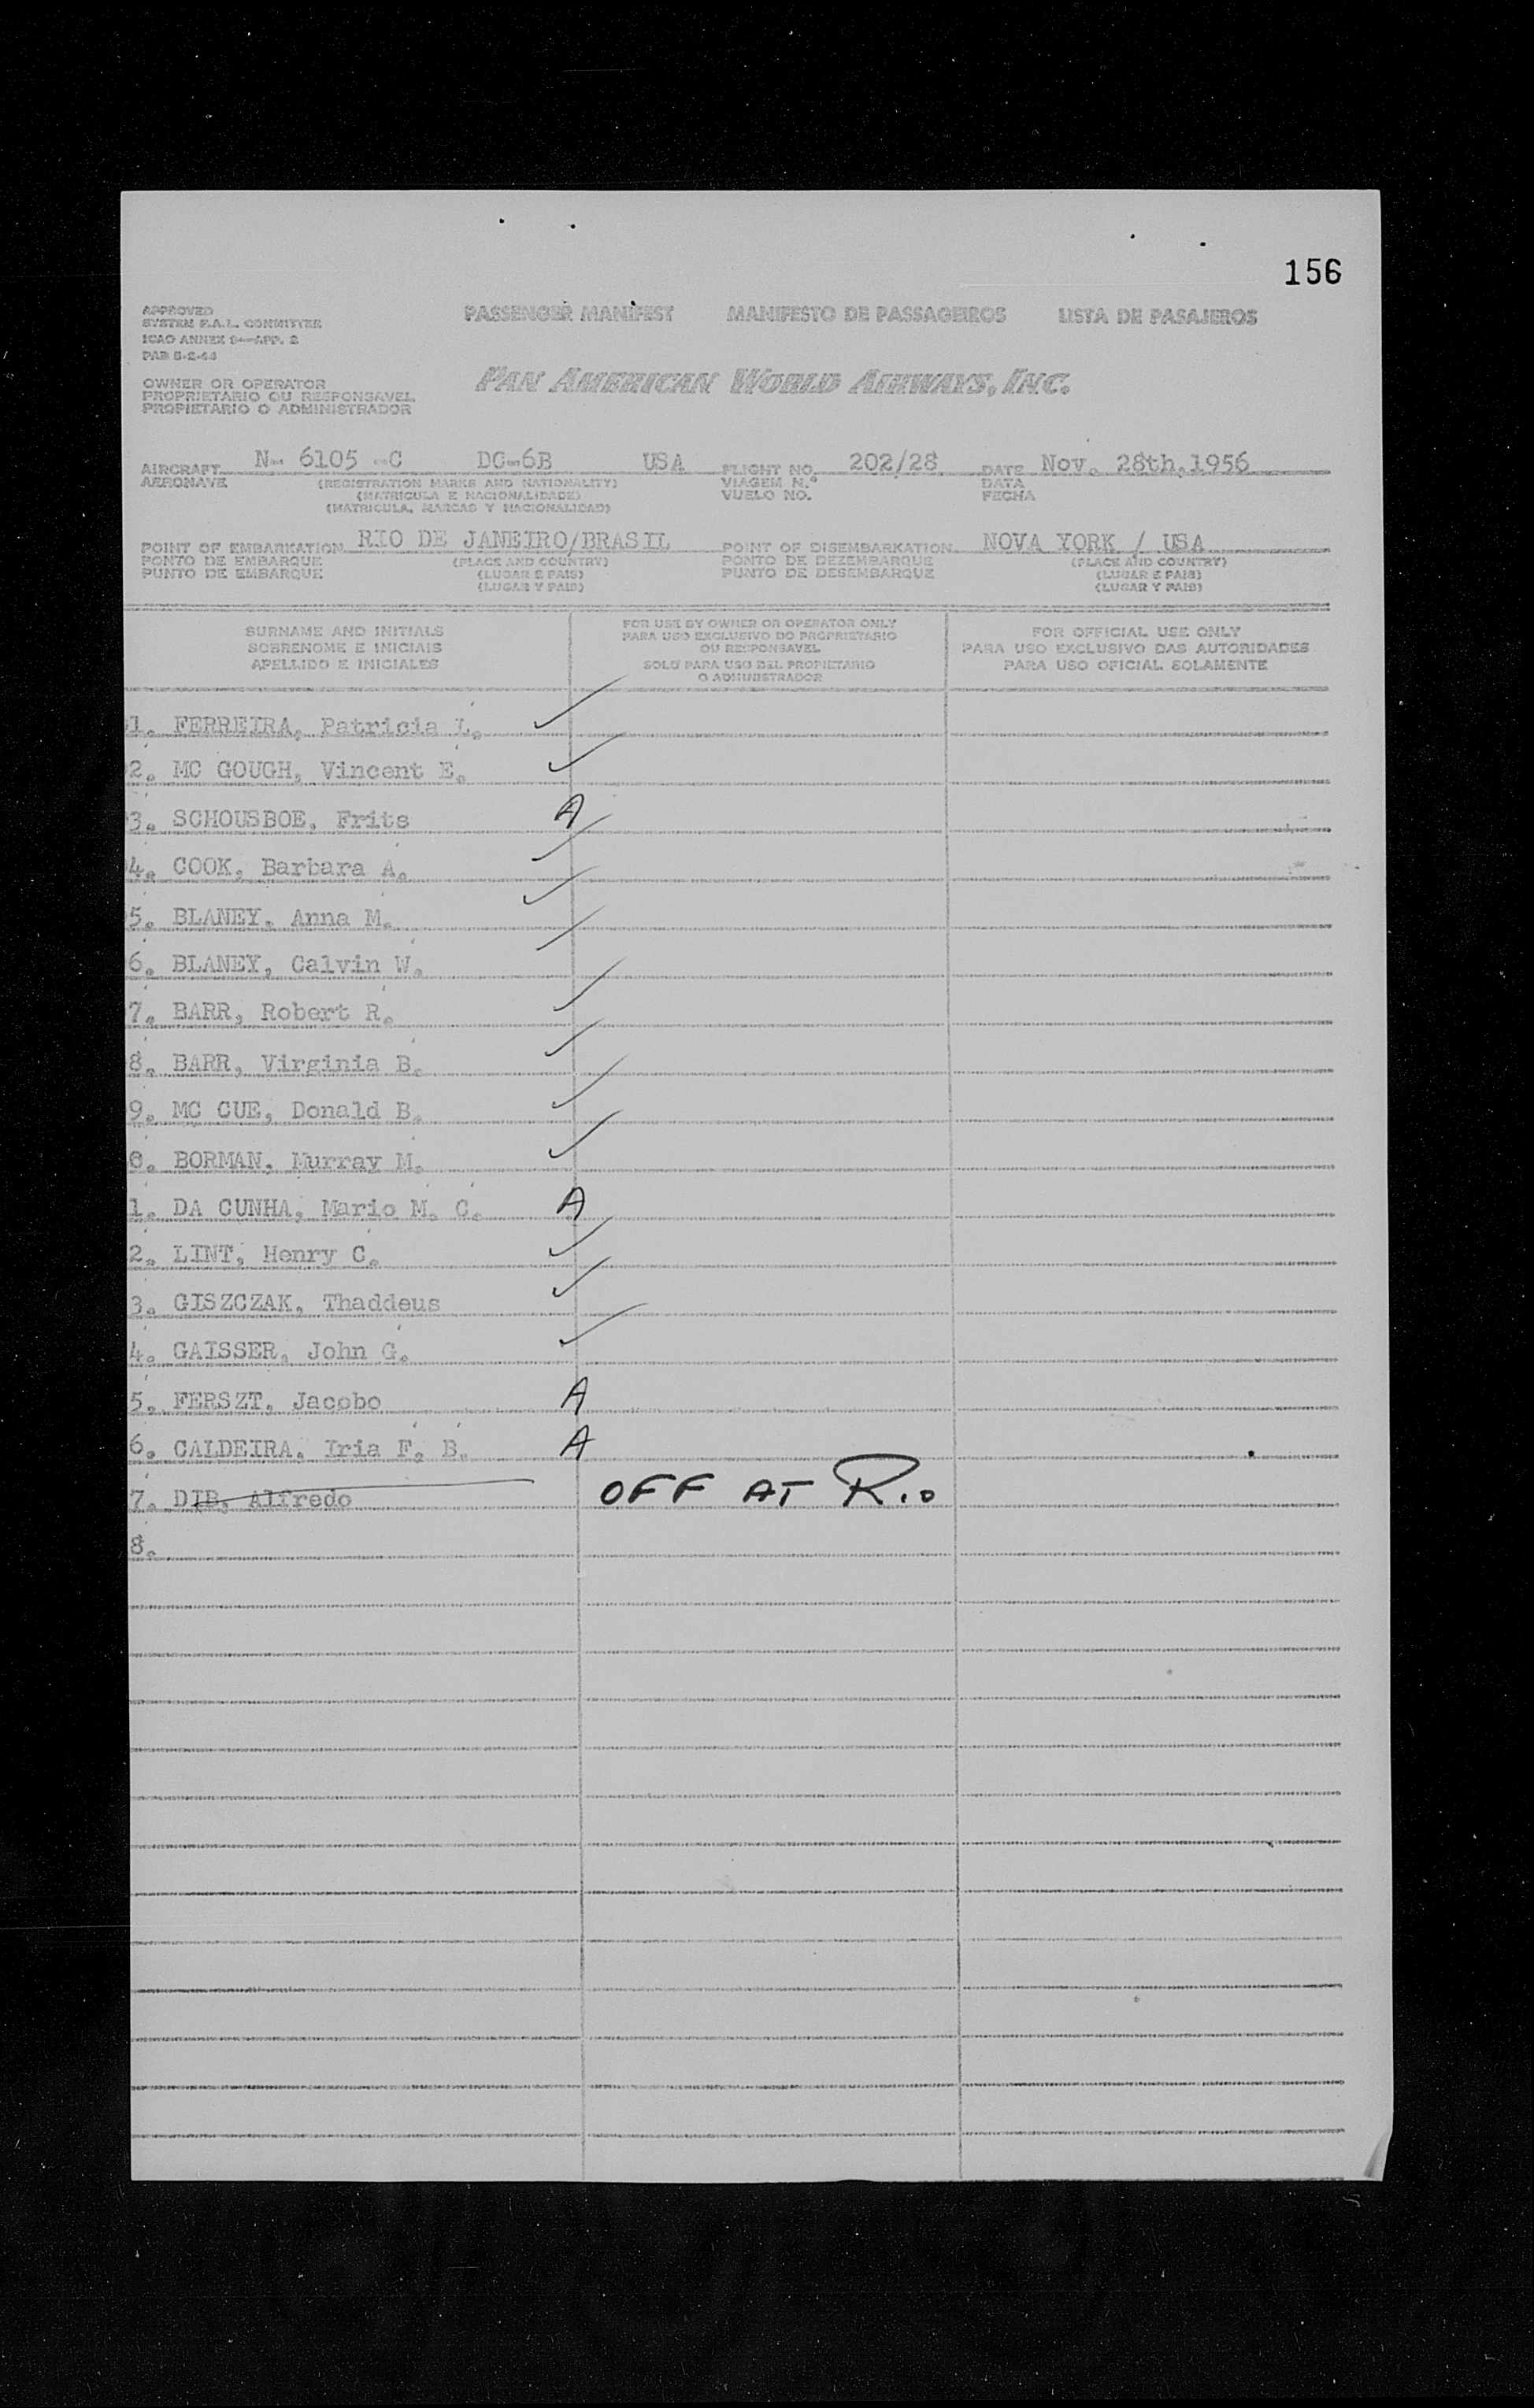 156
APPROVED
SYSTEM F.A.L. COMMITTEE
ICAO ANNEX 9—APP. 2
PAB 5-2-44
PASSENGER MANIFEST MANIFESTO DE PASSAGEIROS LISTA DE PASAJEROS
OWNER OR OPERATOR
PROPRIETARIO OU RESPONSAVEL
PROPIETARIO O ADMINISTRADOR
PAN AMERICAN WORLD AIRWAYS, INC.
AIRCRAFT N- 6105 -C DC-6B USA FLIGHT NO. 202/28 DATE Nov. 28th,1956
AERONAVE (REGISTRATION MARKS AND NATIONALITY) VIAGEM N.º DATA
(MATRICULA E NACIONALIDADE) VUELO NO. FECHA
(MATRICULA, MARCAS Y NACIONALIDAD)
POINT OF EMBARKATION RIO DE JANEIRO/BRASIL POINT OF DISEMBARKATION NOVA YORK / USA
PONTO DE EMBARQUE (PLACE AND COUNTRY) PONTO DE DEZEMBARQUE (PLACE AND COUNTRY)
PUNTO DE EMBARQUE (LUGAR E PAIS) PUNTO DE DESEMBARQUE (LUGAR E PAIS)
(LUGAR Y PAIS) (LUGAR Y PAIS)
SURNAME AND INITIALS
SOBRENOME E INICIAIS
APELLIDO E INICIALES
FOR USE BY OWNER OR OPERATOR ONLY
PARA USO EXCLUSIVO DO PROPRIETARIO
OU RESPONSAVEL
SOLO PARA USO DEL PROPIETARIO
O ADMINISTRADOR
FOR OFFICIAL USE ONLY
PARA USO EXCLUSIVO DAS AUTORIDADES
PARA USO OFICIAL SOLAMENTE
1. FERREIRA, Patricia L. ✓
2. MC GOUGH, Vincent E. ✓
3. SCHOUSBOE, Frits A
4. COOK, Barbara A. ✓
5. BLANEY, Anna M. ✓
6. BLANEY, Calvin W. ✓
7. BARR, Robert R. ✓
8. BARR, Virginia B. ✓
9. MC CUE, Donald B. ✓
0. BORMAN, Murray M. ✓
1. DA CUNHA, Mario M. C. A
2. LINT, Henry C. ✓
3. GISZCZAK, Thaddeus ✓
4. GAISSER, John G. ✓
5. FERSZT, Jacobo A
6. CALDEIRA, Iria F. B. A
7. DIB, Alfredo OFF AT Rio
8.